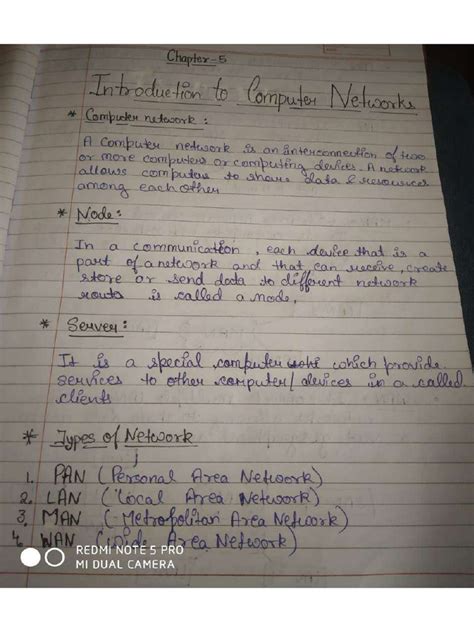 Chapter-5
Introduction to Computer Networks
* Computer network :
A computer network is an interconnection of two
or more computers or computing devices. A network
allows computers to share data & resources
among each other
* Node :
In a communication, each device that is a
part of a network and that can receive, create
store or send data to different network
routs is called a node.
* Server :
It is a special computer which provide
services to other computer/devices in a called
clients
* Types of Network
1. PAN (Personal Area Network)
2. LAN (Local Area Network)
3. MAN (-Metropolitan Area Network)
4. WAN (Wide Area Network)
REDMI NOTE 5 PRO
MI DUAL CAMERA